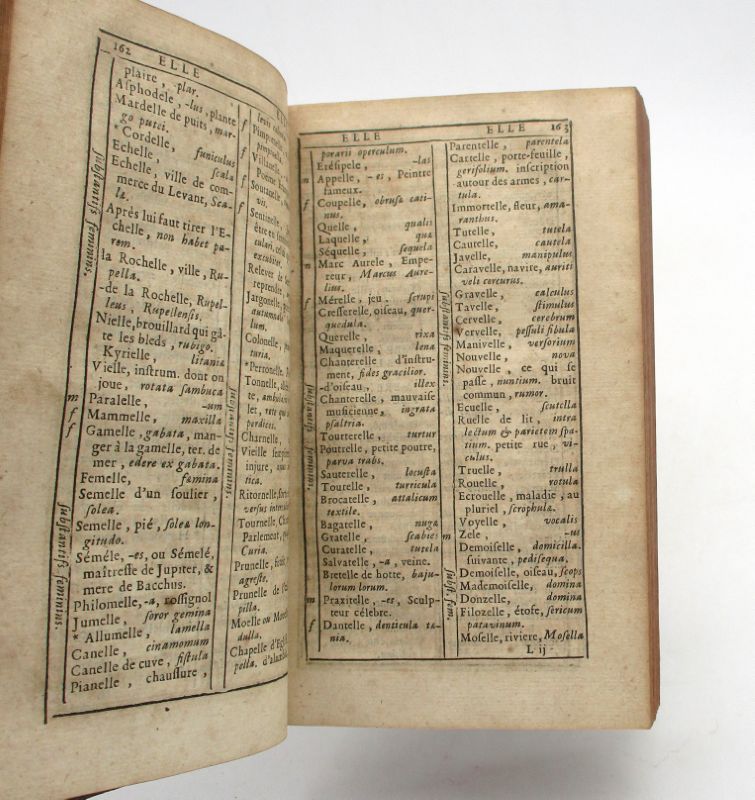 162 ELLE
plaire, -plar.
Asphodele, -lus, plante
Mardelle de puits, mar-
go putei.
*Cordelle, funiculus
Echelle, scala
Echelle, ville de com-
merce du Levant, Sca-
la.
Aprés lui faut tirer l'E-
chelle, non habet pa-
rem.
la Rochelle, ville, Ru-
pella.
-de la Rochelle, Rupel-
leus, Rupellensis.
Nielle, brouillard qui gâ-
te les bleds, rubigo.
Kyrielle, litania
Vielle, instrum. dont on
joue, rotata sambuca
m Paralelle, -um
f Mammelle, maxilla
f Gamelle, gabata, man-
ger à la gamelle, ter. de
mer, edere ex gabata.
Femelle, fæmina
Semelle d'un soulier,
solea.
Semelle, pié, solea lon-
gitudo.
Séméle, -es, ou Sémelé,
maîtresse de Jupiter, &
mere de Bacchus.
Philomelle, -a, rossignol
Jumelle, soror gemina
* Allumelle, lamella
Canelle, cinamomum
Canelle de cuve, fistula
Pianelle, chaussure,
substantifs feminins.
substantifs feminins.
f Pimprenelle,
Villanelle,
Sentinelle,
excubitor.
Relever de
reprendre,
Jargonelle,
autumnale
lum.
Colonelle,
turia.
*Perronelle,
Tonnelle,
te,
let, rete
perdices.
Charnelle,
Vieille
injure,
tica
Ritornelle,
versus
Tournelle,
Parlement,
Curia.
Prunelle,
agreste.
Prunelle de
pilla.
Moelle ou
dulla.
Chapelle d'Egl
pella. d'
substantifs feminins.
ELLE
porarii operculum.
Erésipele, -las
m Appelle, -es, Peintre
fameux.
f Coupelle, obrusa cati-
nus.
Quelle, qualis
Laquelle, quæ
Séquelle, sequela
m Marc Aurele, Empe-
reur, Marcus Aure-
lius.
f Mérelle, jeu. scrupi
Cresserelle, oiseau, quer-
quedula.
Querelle, rixa
Maquerelle, lena
Chanterelle d'instru-
ment, fides gracilior.
-d'oiseau, illex
Chanterelle, mauvaise
musicienne, ingrata
psaltria.
Tourterelle, turtur
Poutrelle, petite poutre,
parva trabs.
Sauterelle, locusta
Tourelle, turricula
Brocatelle, attalicum
textile.
Bagatelle, nuga
Gratelle, scabies
Curatelle, tutela
Salvatelle, -a, veine.
Bretelle de hotte, baju-
lorum lorum.
m Praxitelle, -es, Sculp-
teur célebre.
f Dantelle, denticula tæ-
nia.
substantifs feminins.
ELLE 163
Parentelle, parentela
Cartelle, porte-feuille,
gerifolium. inscription
autour des armes, car-
tula.
Immortelle, fleur, ama-
ranthus.
Tutelle, tutela
Cautelle, cautela
Javelle, manipulus
Caravelle, navire, auriti
veli cercurus.
Gravelle, calculus
Tavelle, stimulus
Cervelle, cerebrum
Vervelle, pessuli fibula
Manivelle, versorium
Nouvelle, nova
Nouvelle, ce qui se
passe, nuntium. bruit
commun, rumor.
Ecuelle, scutella
Ruelle de lit, intra
lectum & parietem spa-
tium. petite rue, vi-
culus.
Truelle, trulla
Rouelle, rotula
Ecrouelle, maladie, au
pluriel, scrophula.
Voyelle, vocalis
m Zele, -us
Demoiselle, domicilla.
suivante, pedisequa.
Demoiselle, oiseau, scops
Mademoiselle, domina
Donzelle, domina
Filozelle, étofe, sericum
patavinum.
Moselle, riviere, Mosella
substantifs feminins.
subst. fem.
L ij